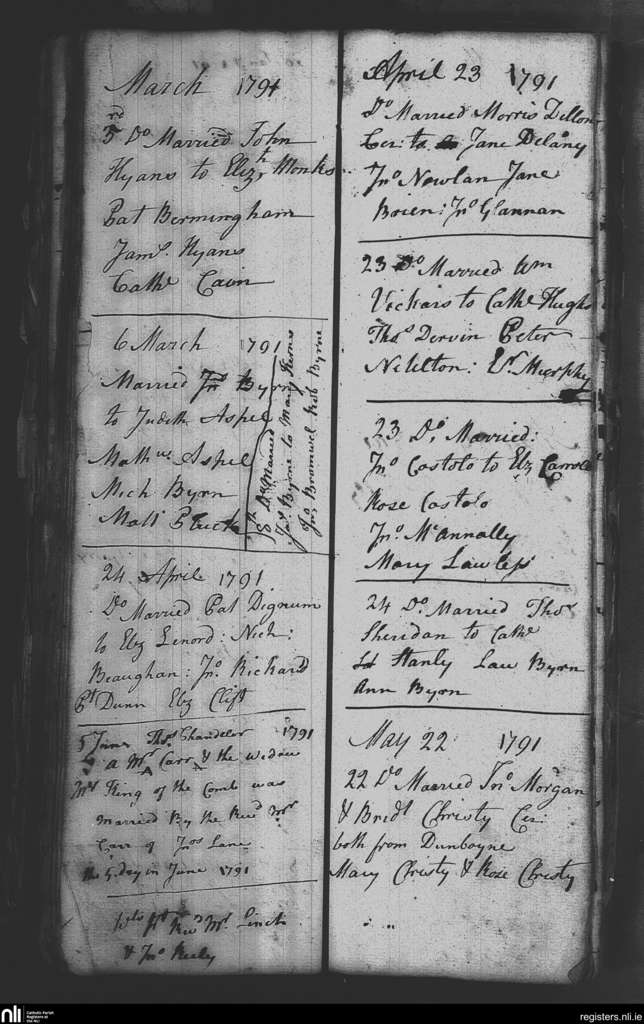 March 1791
5rd Do Married John
Hyans to Elizth Monks
Pat Bermingham
Jams. Hyans
Cathe Cavin
6 March 1791
Married Jno Byrn
to Judith Aspel
Mathws Aspel
Mich Byrn
Matt Pluck
18th Do Married
Jas Byrne to Mary Kerns
Jno Bromwel Rob Byrne
24 April 1791
Do Married Pat Dignum
to Elz Lenord: Nich:
Beaughan: Jno Rickard
Pt Dunn Elz Clift
5 June Thos Chandeler 1791
a Mr Carr & the Widow
Mrs King of the Comb was
Married By the Revd Mr
Carr of Jnos Lane
the 5 day in June 1791
Revd Mr Linch
& Jno Kealy
April 23 1791
Do Married Morris Dillon
Cer: to Jane Delany
Jno Nowlan Jane
Brien: Jno Glannan
23 Do Married Wm
Vickars to Cathe Hughs
Thos Dervin Peter
Nelelton: Er Murphy
23 Do Married:
Jno Costolo to Elz Carroll
Rose Costolo
Jno McAnnally
Mary Lawless
24 Do Married Thos
Sheridan to Cathe
Stanly Law Byrn
Ann Byrn
May 22 1791
22 Do Married Jno Morgan
& Bridt Christy Cer:
both from Dunboyne
Mary Christy & Rose Christy
nli
Catholic Parish
Registers at
the NLI
registers.nli.ie